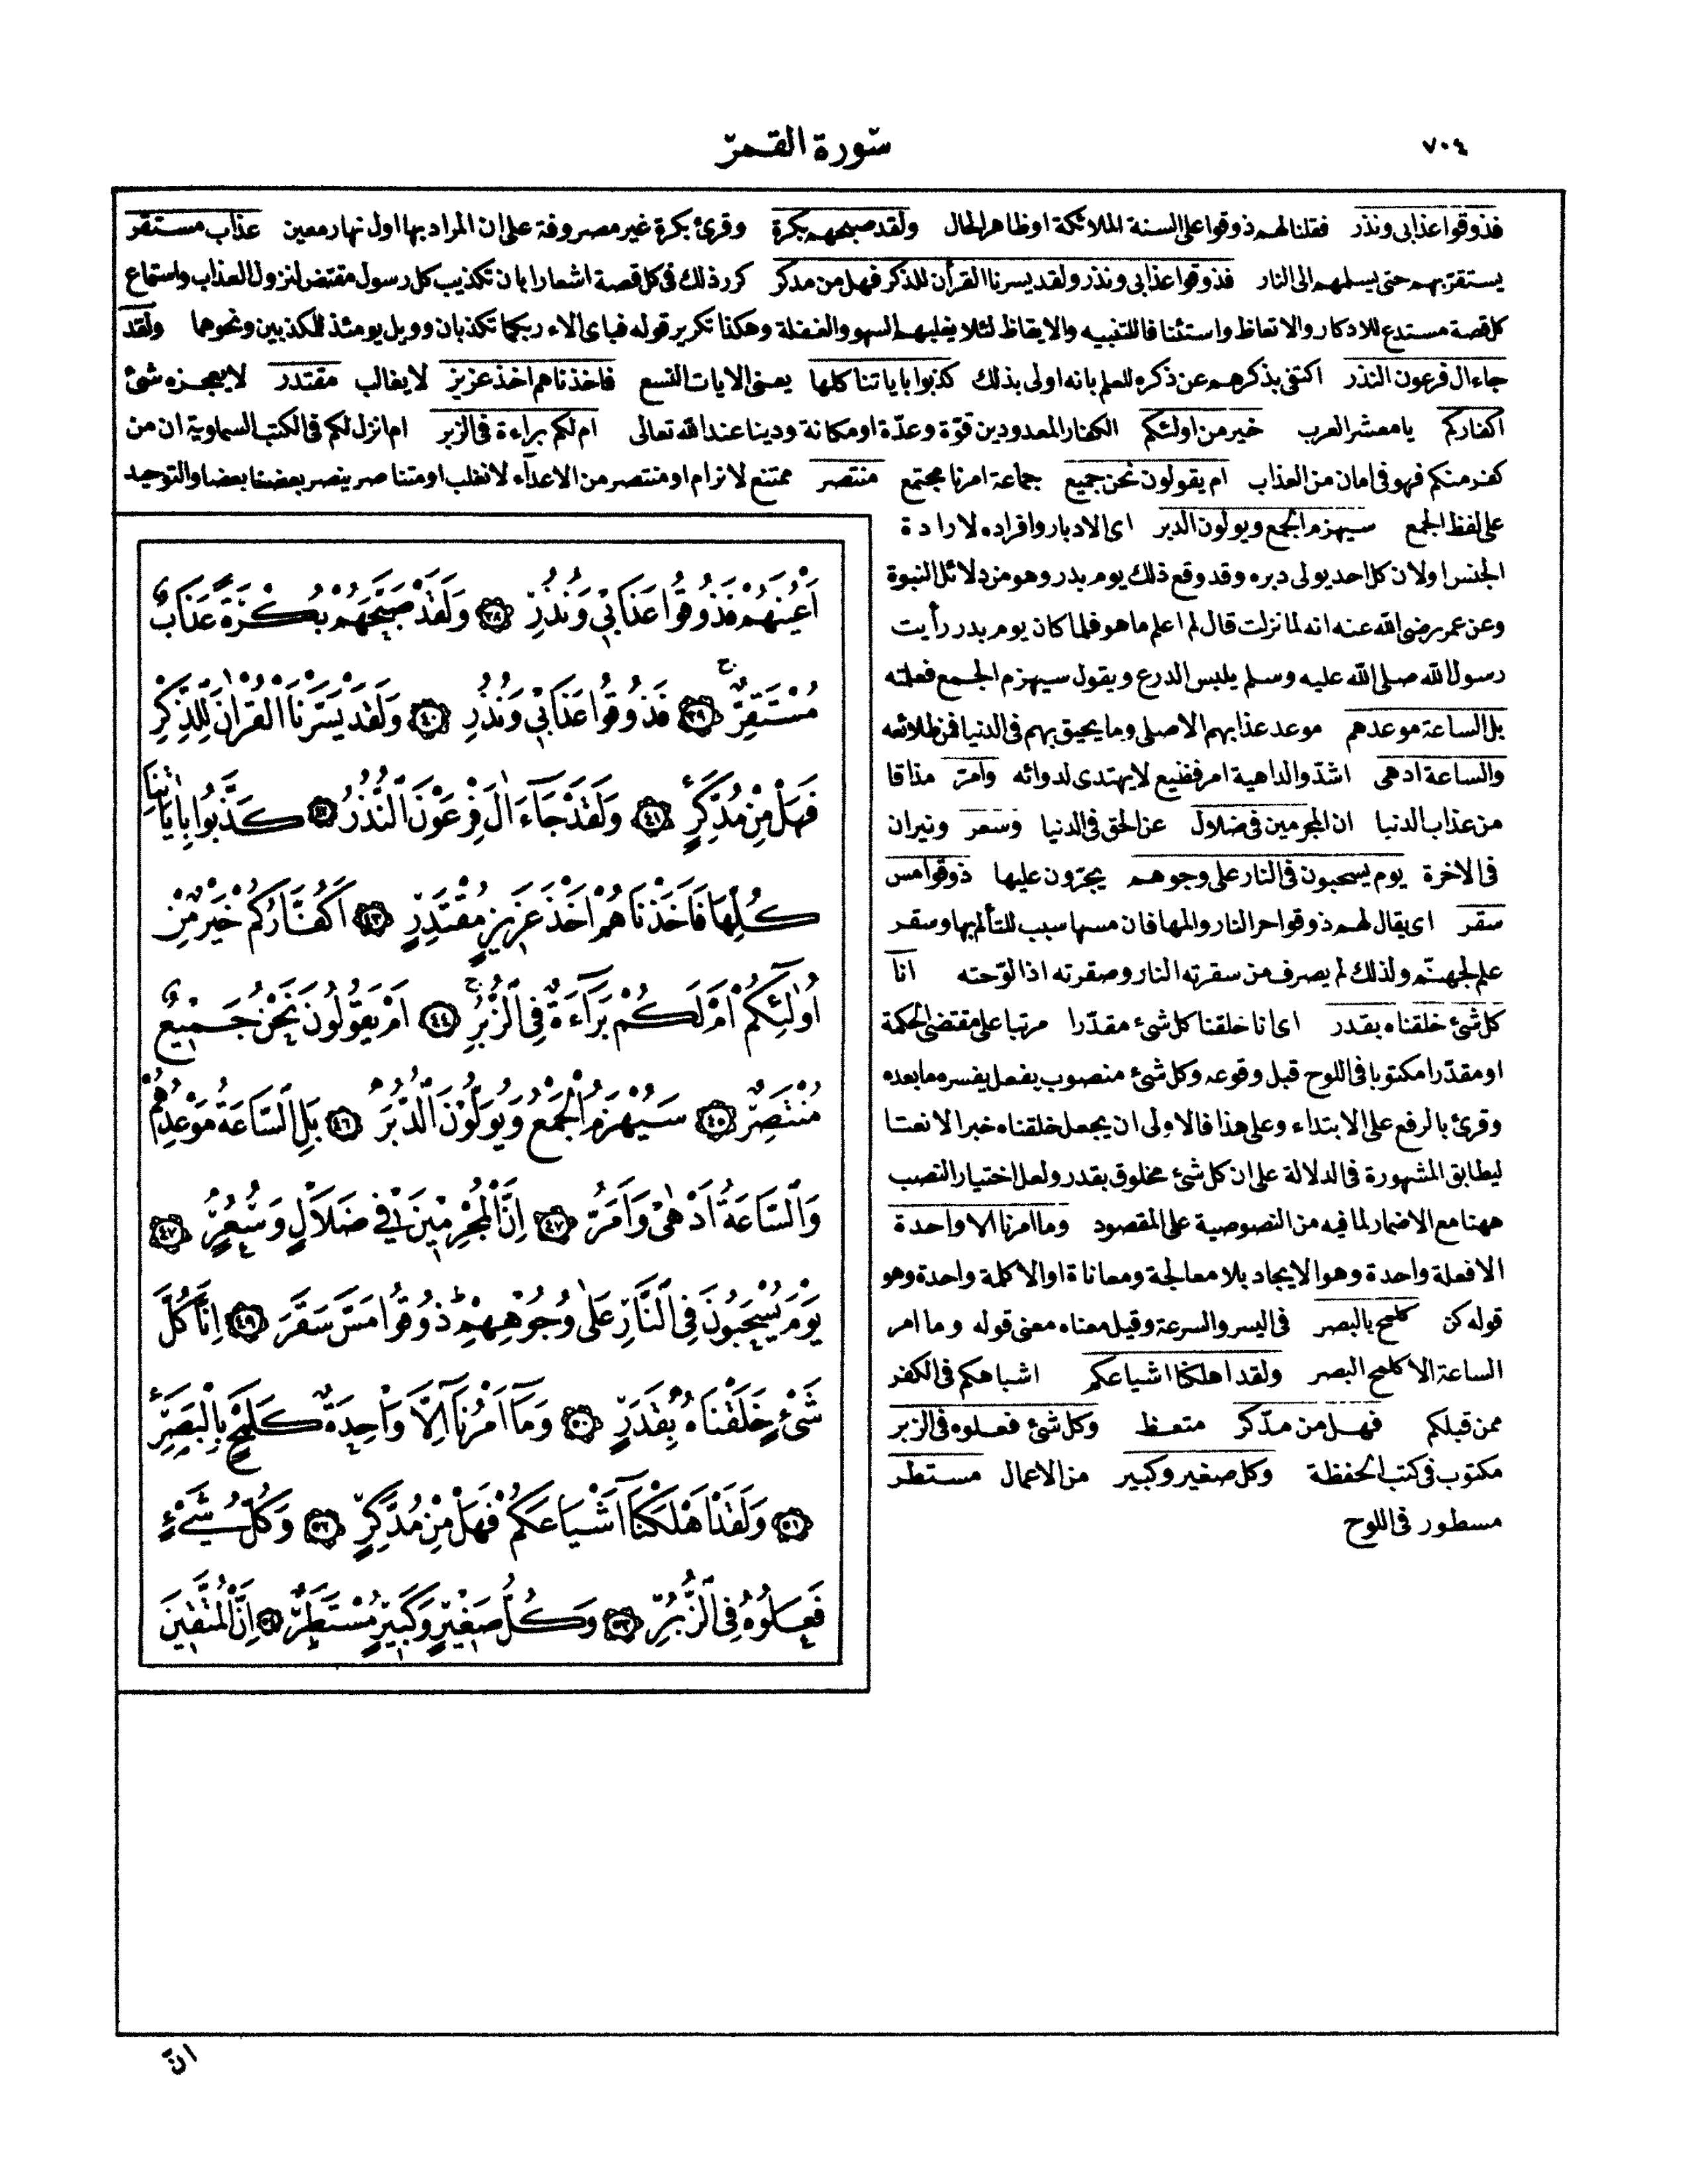 ٧٠٤
سورة القمر
فذوقوا عذابى ونذر فقلنا لهم ذوقوا على السنة الملائكة او ظاهر الحال ولقد صبحهم بكرة وقرئ بكرة غير مصروفة على ان المراد بها اول نهار معين عذاب مستقر
يستقر بهم حتى يسلمهم الى النار فذوقوا عذابى ونذر ولقد يسرنا القرأن للذكر فهل من مدكر كرر ذلك فى كل قصة اشعارا بان تكذيب كل رسول مقتض لنزول العذاب واستماع
كل قصة مستدع للادكار والاتعاظ واستئنافا للتنبيه والايقاظ لئلا يغلبهم السهو والغفلة وهكذا تكرير قوله فباى الاء ربكما تكذبان وويل يومئذ للمكذبين ونحوها ولقد
جاء ال فرعون النذر اكتفى بذكرهم عن ذكره للعلم بانه اولى بذلك كذبوا باياتنا كلها يعنى الايات التسع فاخذناهم اخذ عزيز لا يغالب مقتدر لا يعجزه شئ
اكفاركم يا معشر العرب خير من اولئكم الكفار المعدودين قوّة وعدّة او مكانة ودينا عند الله تعالى ام لكم براءة فى الزبر ام انزل لكم فى الكتب السماوية ان من
كفر منكم فهو فى امان من العذاب ام يقولون نحن جميع جماعة امرنا مجتمع منتصر ممتنع لا نرام او منتصر من الاعداء لا نغلب او متناصر ينصر بعضنا بعضا والتوحيد
على لفظ الجمع سيهزم الجمع ويولون الدبر اى الادبار وافراده لارادة
الجنس او لان كل احد يولى دبره وقد وقع ذلك يوم بدر وهو من دلائل النبوة
وعن عمر رضى الله عنه انه لما نزلت قال لم اعلم ما هو فلما كان يوم بدر رأيت
رسول الله صلى الله عليه وسلم يلبس الدرع ويقول سيهزم الجمع فعلمته
بل الساعة موعدهم موعد عذابهم الاصلى وما يحيق بهم فى الدنيا فمن طلائعه
والساعة ادهى اشدّ والداهية امر فظيع لا يهتدى لدوائه وامرّ مذاقا
من عذاب الدنيا ان المجرمين فى ضلال عن الحق فى الدنيا وسعر ونيران
فى الاخرة يوم يسحبون فى النار على وجوههم يجرّون عليها ذوقوا مس
سقر اى يقال لهم ذوقوا حر النار والمها فان مسها سبب للتألم بها وسقر
علم لجهنّم ولذلك لم يصرف من سقرته النار وصقرته اذا لوّحته انا
كل شئ خلقناه بقدر اى انا خلقنا كل شئ مقدّرا مرتبا على مقتضى الحكمة
او مقدّرا مكتوبا فى اللوح قبل وقوعه وكل شئ منصوب بفعل يفسره ما بعده
وقرئ بالرفع على الابتداء وعلى هذا فالاولى ان يجعل خلقناه خبرا لا نعتا
ليطابق المشهورة فى الدلالة على ان كل شئ مخلوق بقدر ولعل اختيار النصب
ههنا مع الاضمار لما فيه من النصوصية على المقصود وما امرنا الا واحدة
الا فعلة واحدة وهو الايجاد بلا معالجة ومعاناة او الا كلمة واحدة وهو
قوله كن كلمح بالبصر فى اليسر والسرعة وقيل معناه معنى قوله وما امر
الساعة الا كلمح البصر ولقد اهلكنا اشياعكم اشباهكم فى الكفر
ممن قبلكم فهل من مدّكر متعظ وكل شئ فعلوه فى الزبر
مكتوب فى كتب الحفظة وكل صغير وكبير من الاعمال مستطر
مسطور فى اللوح
اَعْيُنَهُمْ فَذُوقُوا عَذَابِى وَنُذُرِ ٣٨ وَلَقَدْ صَبَّحَهُمْ بُكْرَةً عَذَابٌ
مُسْتَقِرٌّ ٣٩ فَذُوقُوا عَذَابِى وَنُذُرِ ٤٠ وَلَقَدْ يَسَّرْنَا الْقُرْاٰنَ لِلذِّكْرِ
فَهَلْ مِنْ مُدَّكِرٍ ٤١ وَلَقَدْ جَاءَ اٰلَ فِرْعَوْنَ النُّذُرُ ٤٢ كَذَّبُوا بِاٰيَاتِنَا
كُلِّهَا فَاَخَذْنَاهُمْ اَخْذَ عَزِيزٍ مُقْتَدِرٍ ٤٣ اَكُفَّارُكُمْ خَيْرٌ مِنْ
اُولٰئِكُمْ اَمْ لَكُمْ بَرَاءَةٌ فِى الزُّبُرِ ٤٤ اَمْ يَقُولُونَ نَحْنُ جَمِيعٌ
مُنْتَصِرٌ ٤٥ سَيُهْزَمُ الْجَمْعُ وَيُوَلُّونَ الدُّبُرَ ٤٦ بَلِ السَّاعَةُ مَوْعِدُهُمْ
وَالسَّاعَةُ اَدْهٰى وَاَمَرُّ ٤٧ اِنَّ الْمُجْرِمِينَ فِى ضَلَالٍ وَسُعُرٍ ٤٧
يَوْمَ يُسْحَبُونَ فِى النَّارِ عَلٰى وُجُوهِهِمْ ذُوقُوا مَسَّ سَقَرَ ٤٩ اِنَّا كُلَّ
شَىْءٍ خَلَقْنَاهُ بِقَدَرٍ ٥٠ وَمَا اَمْرُنَا اِلَّا وَاحِدَةٌ كَلَمْحٍ بِالْبَصَرِ
٥١ وَلَقَدْ اَهْلَكْنَا اَشْيَاعَكُمْ فَهَلْ مِنْ مُدَّكِرٍ ٥٢ وَكُلُّ شَىْءٍ
فَعَلُوهُ فِى الزُّبُرِ ٥٣ وَكُلُّ صَغِيرٍ وَكَبِيرٍ مُسْتَطَرٌ ٥٤ اِنَّ الْمُتَّقِينَ
انّ